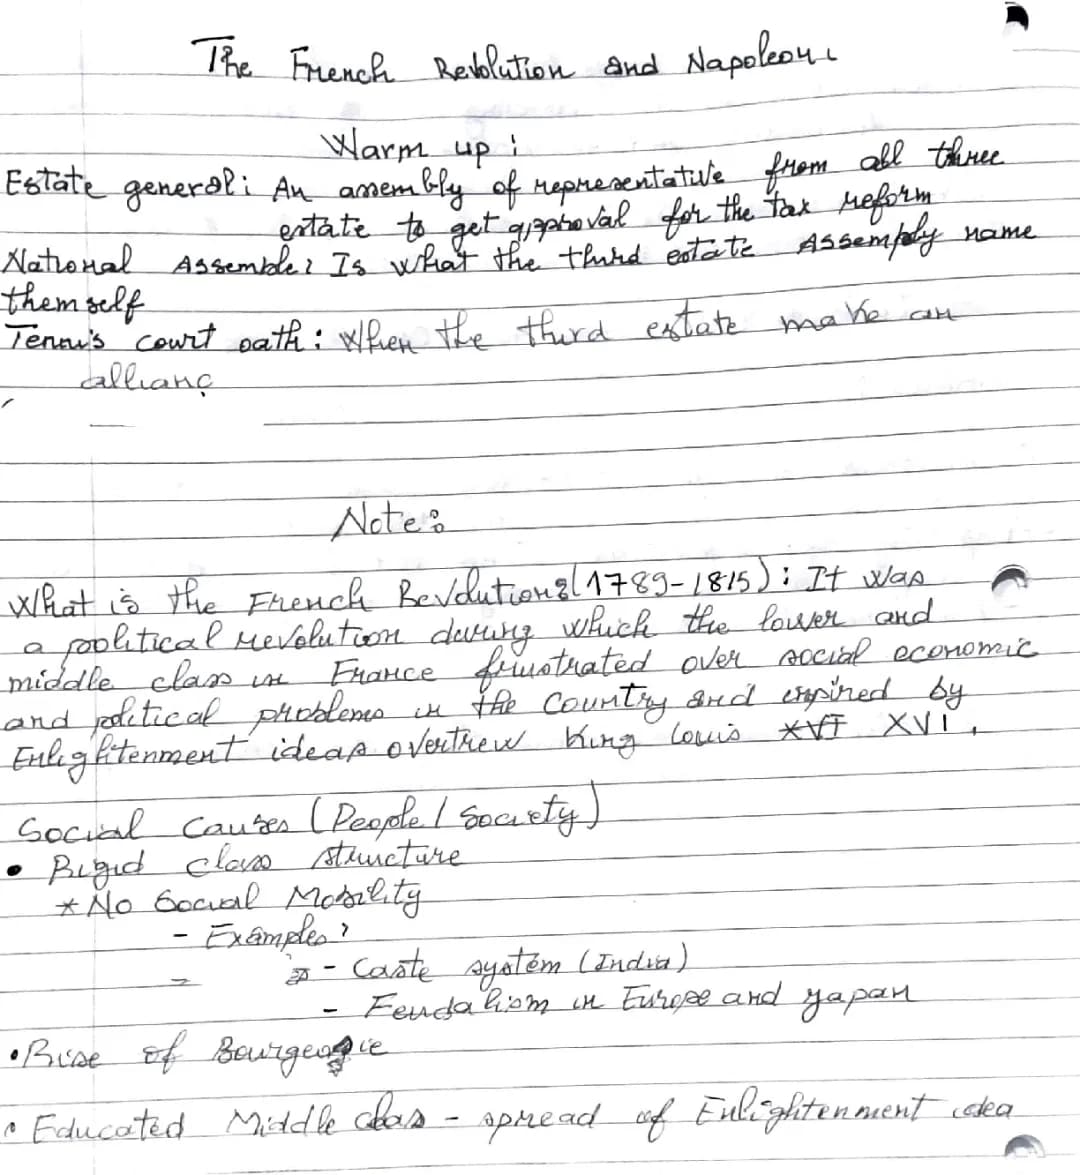 The French Revolution and Napoleon:
Warm up:
Estate general: An assembly of representative from all three
estate to get approval for the tax reform
National Assemble: Is what the third estate Assemply name
themself
Tennis court oath: When the third estate make an
allianç
Note:
What is the French Revolution: (1789-1815): It was
a political revolution during which the lower and
middle class in France frustrated over social economic
and political problems in the Country and inspired by
Enlightenment ideas overtrew King Louis XVI XVI.
Social Causes (People / Society)
• Rigid class structure
* No Social Mobility
- Examples:
- Caste system (India)
- Feudalism in Europe and yapan
• Rise of Bourgeosie
• Educated Middle class - spread of Enlightenment idea